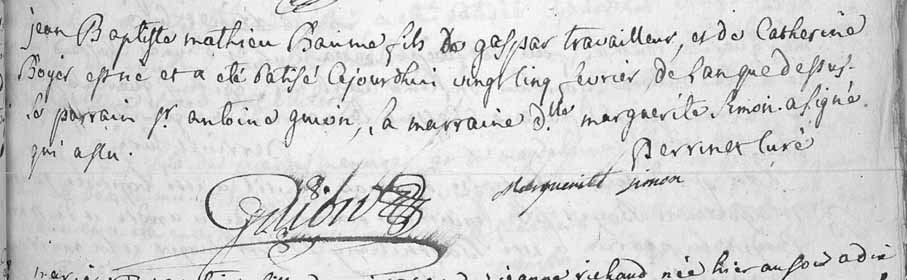 jean Baptiste mathieu Baume fils de gaspar travailleur, et de Catherine
Boyer est né et a été batisé cejourdhui vingt cinq fevrier, de l'an que dessus.
le parrain sr. antoine guion, la marraine d.lle marguerite Simon. a signé
qui a sçu.
Perrinet Curé
Marguerite simon
jeanne richaud née hier au soir a été